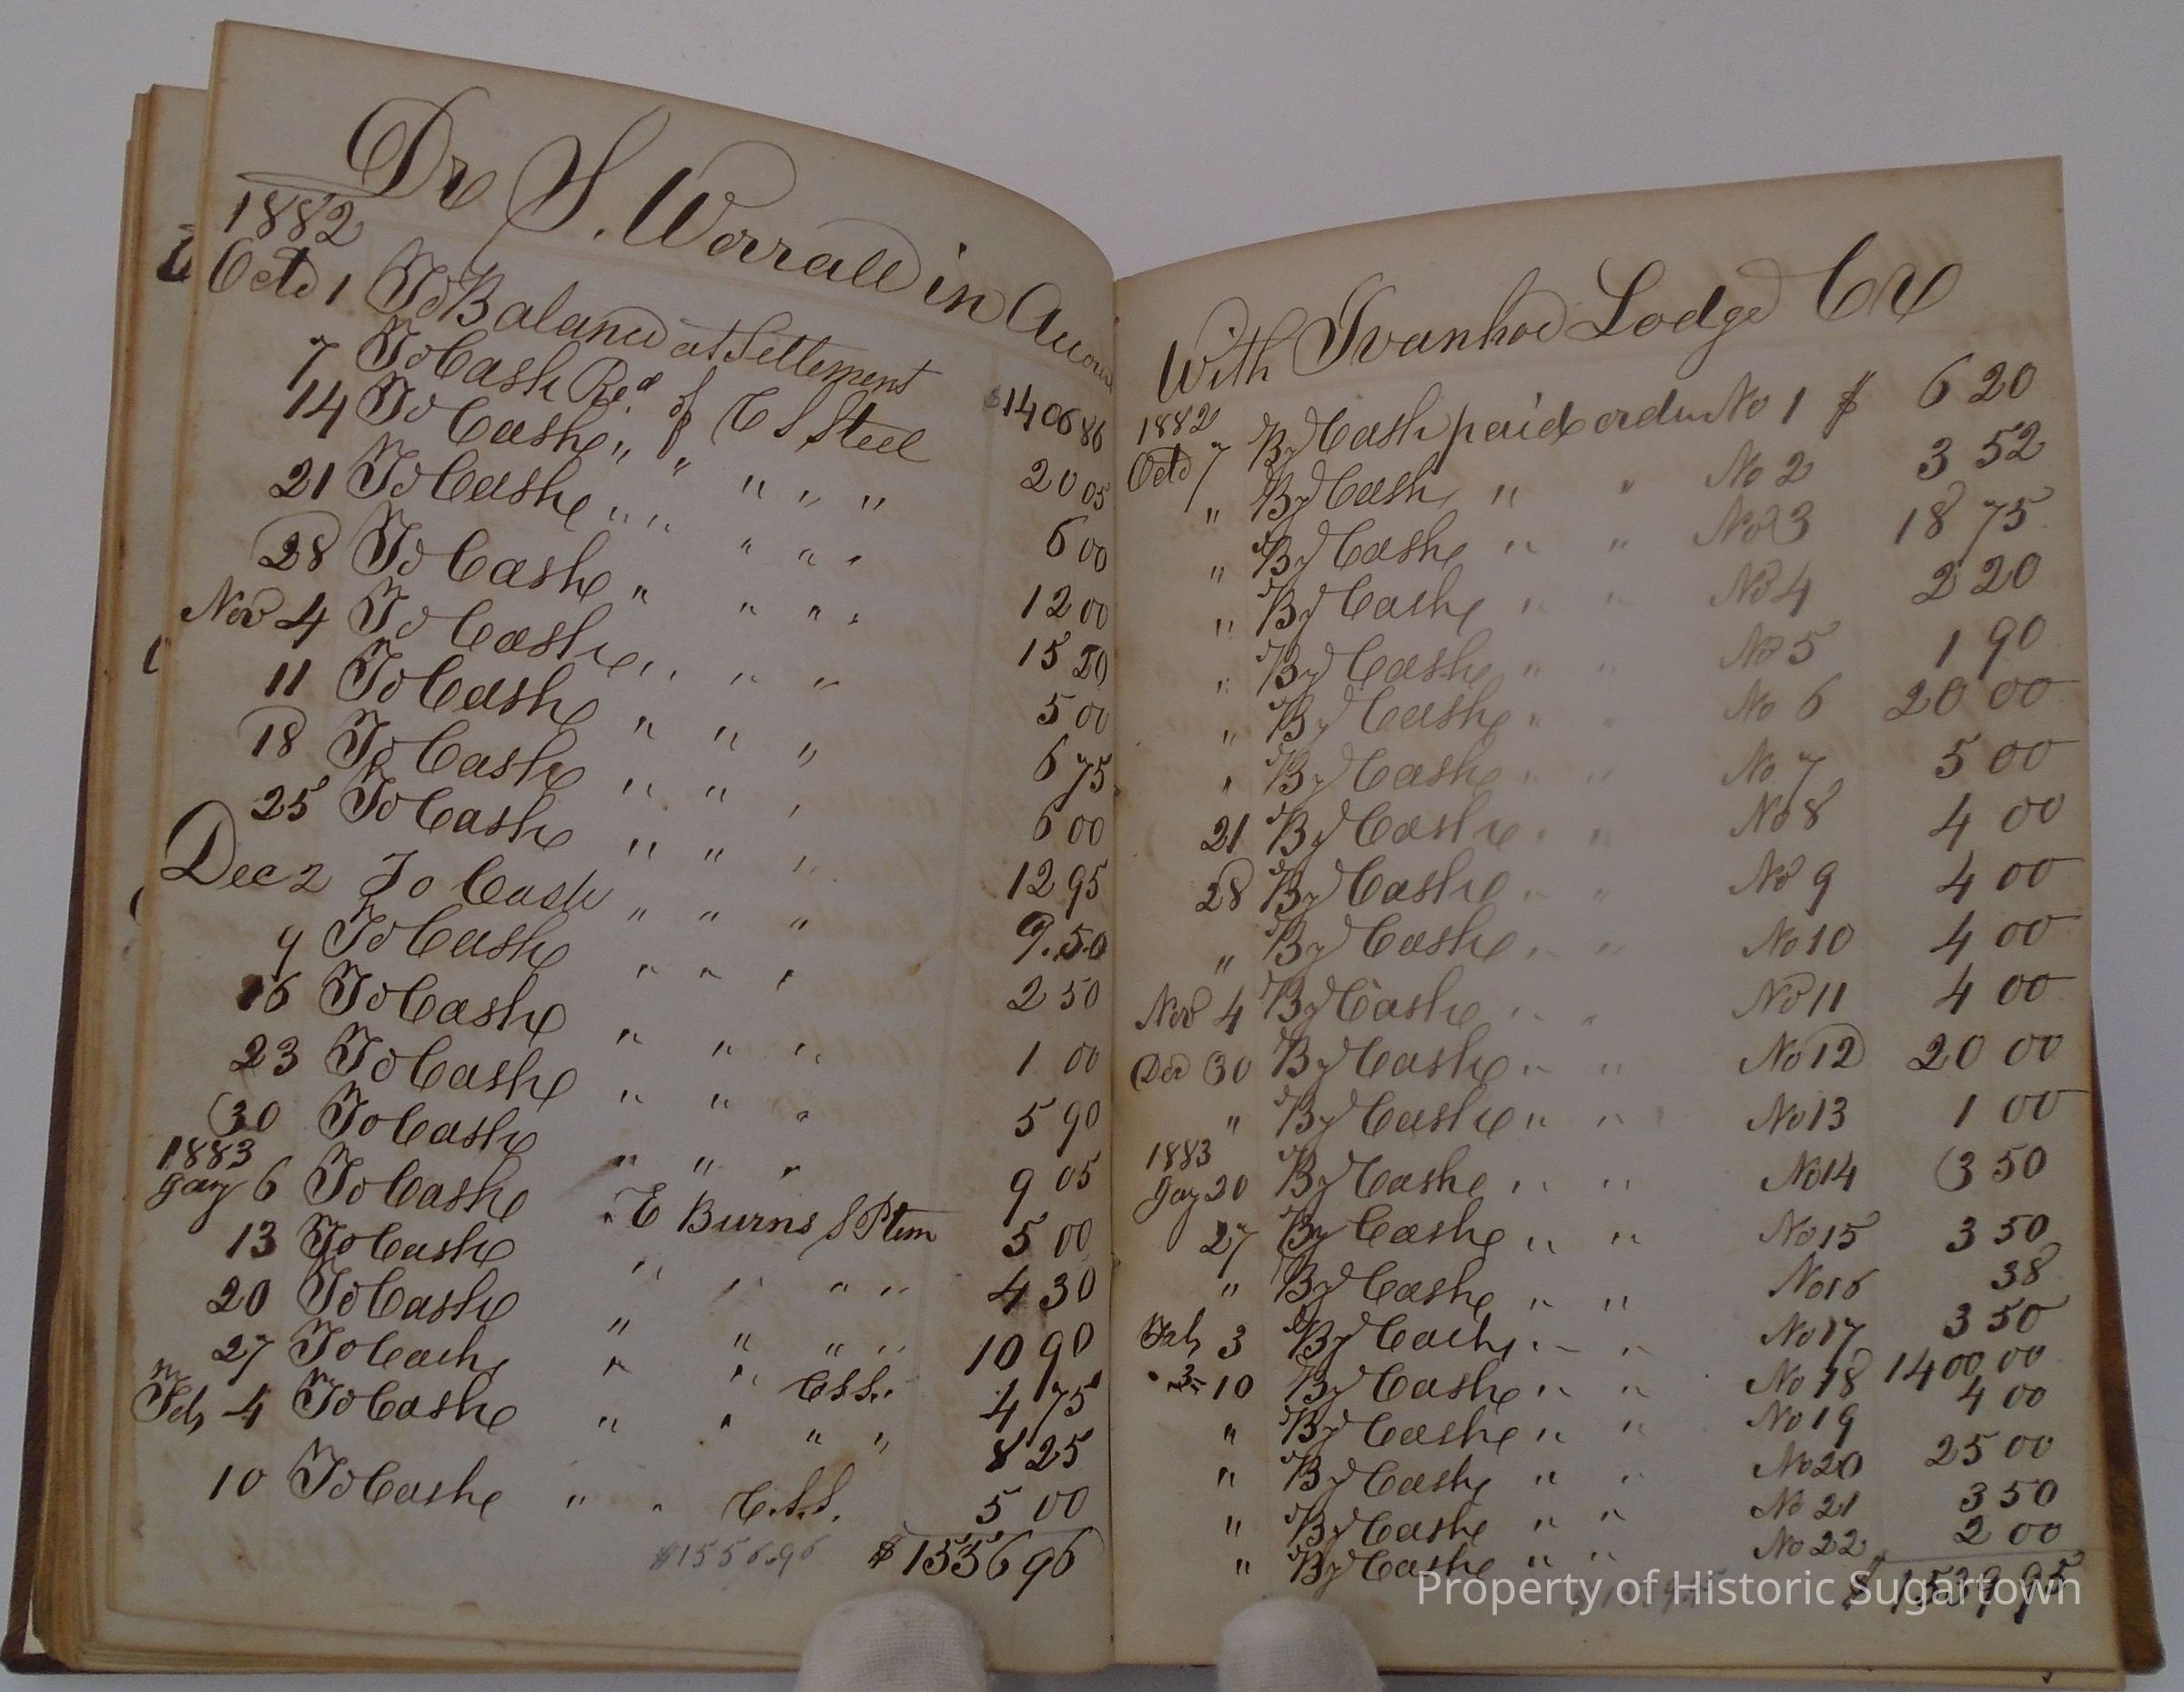 Dr S. Worrall in Account
1882
Octo 1 To Balance at Settlement $1406 86
7 To Cash Recd of C S Steel 20 05
14 To Cash " " " " " 6 00
21 To Cash " " " " " 12 00
28 To Cash " " " " 15 20
Nov 4 To Cash " " " 5 00
11 To Cash " " " 6 75
18 To Cash " " " 6 00
25 To Cash " " " 12 95
Dec 2 To Cash " " " 9.50
9 To Cash " " " 2 50
16 To Cash " " " 1 00
23 To Cash " " " 5 90
30 To Cash " " " 9 05
1883
Jay 6 To Cash " E Burns S P tem 5 00
13 To Cash " " " " 4 30
20 To Cash " " " " 10 90
27 To Cash " " C.S.S. 4 75
Feb 4 To Cash " " " " 8 25
10 To Cash " " C.S.S. 5 00
$1556.96 $1556 96
With Ivanhoe Lodge Cr
1882
Octo 7 By Cash paid order No 1 $ 6 20
" By Cash " " No 2 3 52
" By Cash " " No 3 18 75
" By Cash " " No 4 2 20
" By Cash " " No 5 1 90
" By Cash " " No 6 20 00
" By Cash " " No 7 5 00
21 By Cash " " No 8 4 00
28 By Cash " " No 9 4 00
" By Cash " " No 10 4 00
Nov 4 By Cash " " No 11 4 00
Dec 30 By Cash " " No 12 20 00
" By Cash " " No 13 1 00
1883
Jay 20 By Cash " " No 14 3 50
27 By Cash " " No 15 3 50
" By Cash " " No 16 38
Feb 3 By Cash " " No 17 3 50
" 10 By Cash " " No 18 1400 00
" By Cash " " No 19 4 00
" By Cash " " No 20 25 00
" By Cash " " No 21 3 50
" By Cash " " No 22 2 00
$ 1539 95
Property of Historic Sugartown